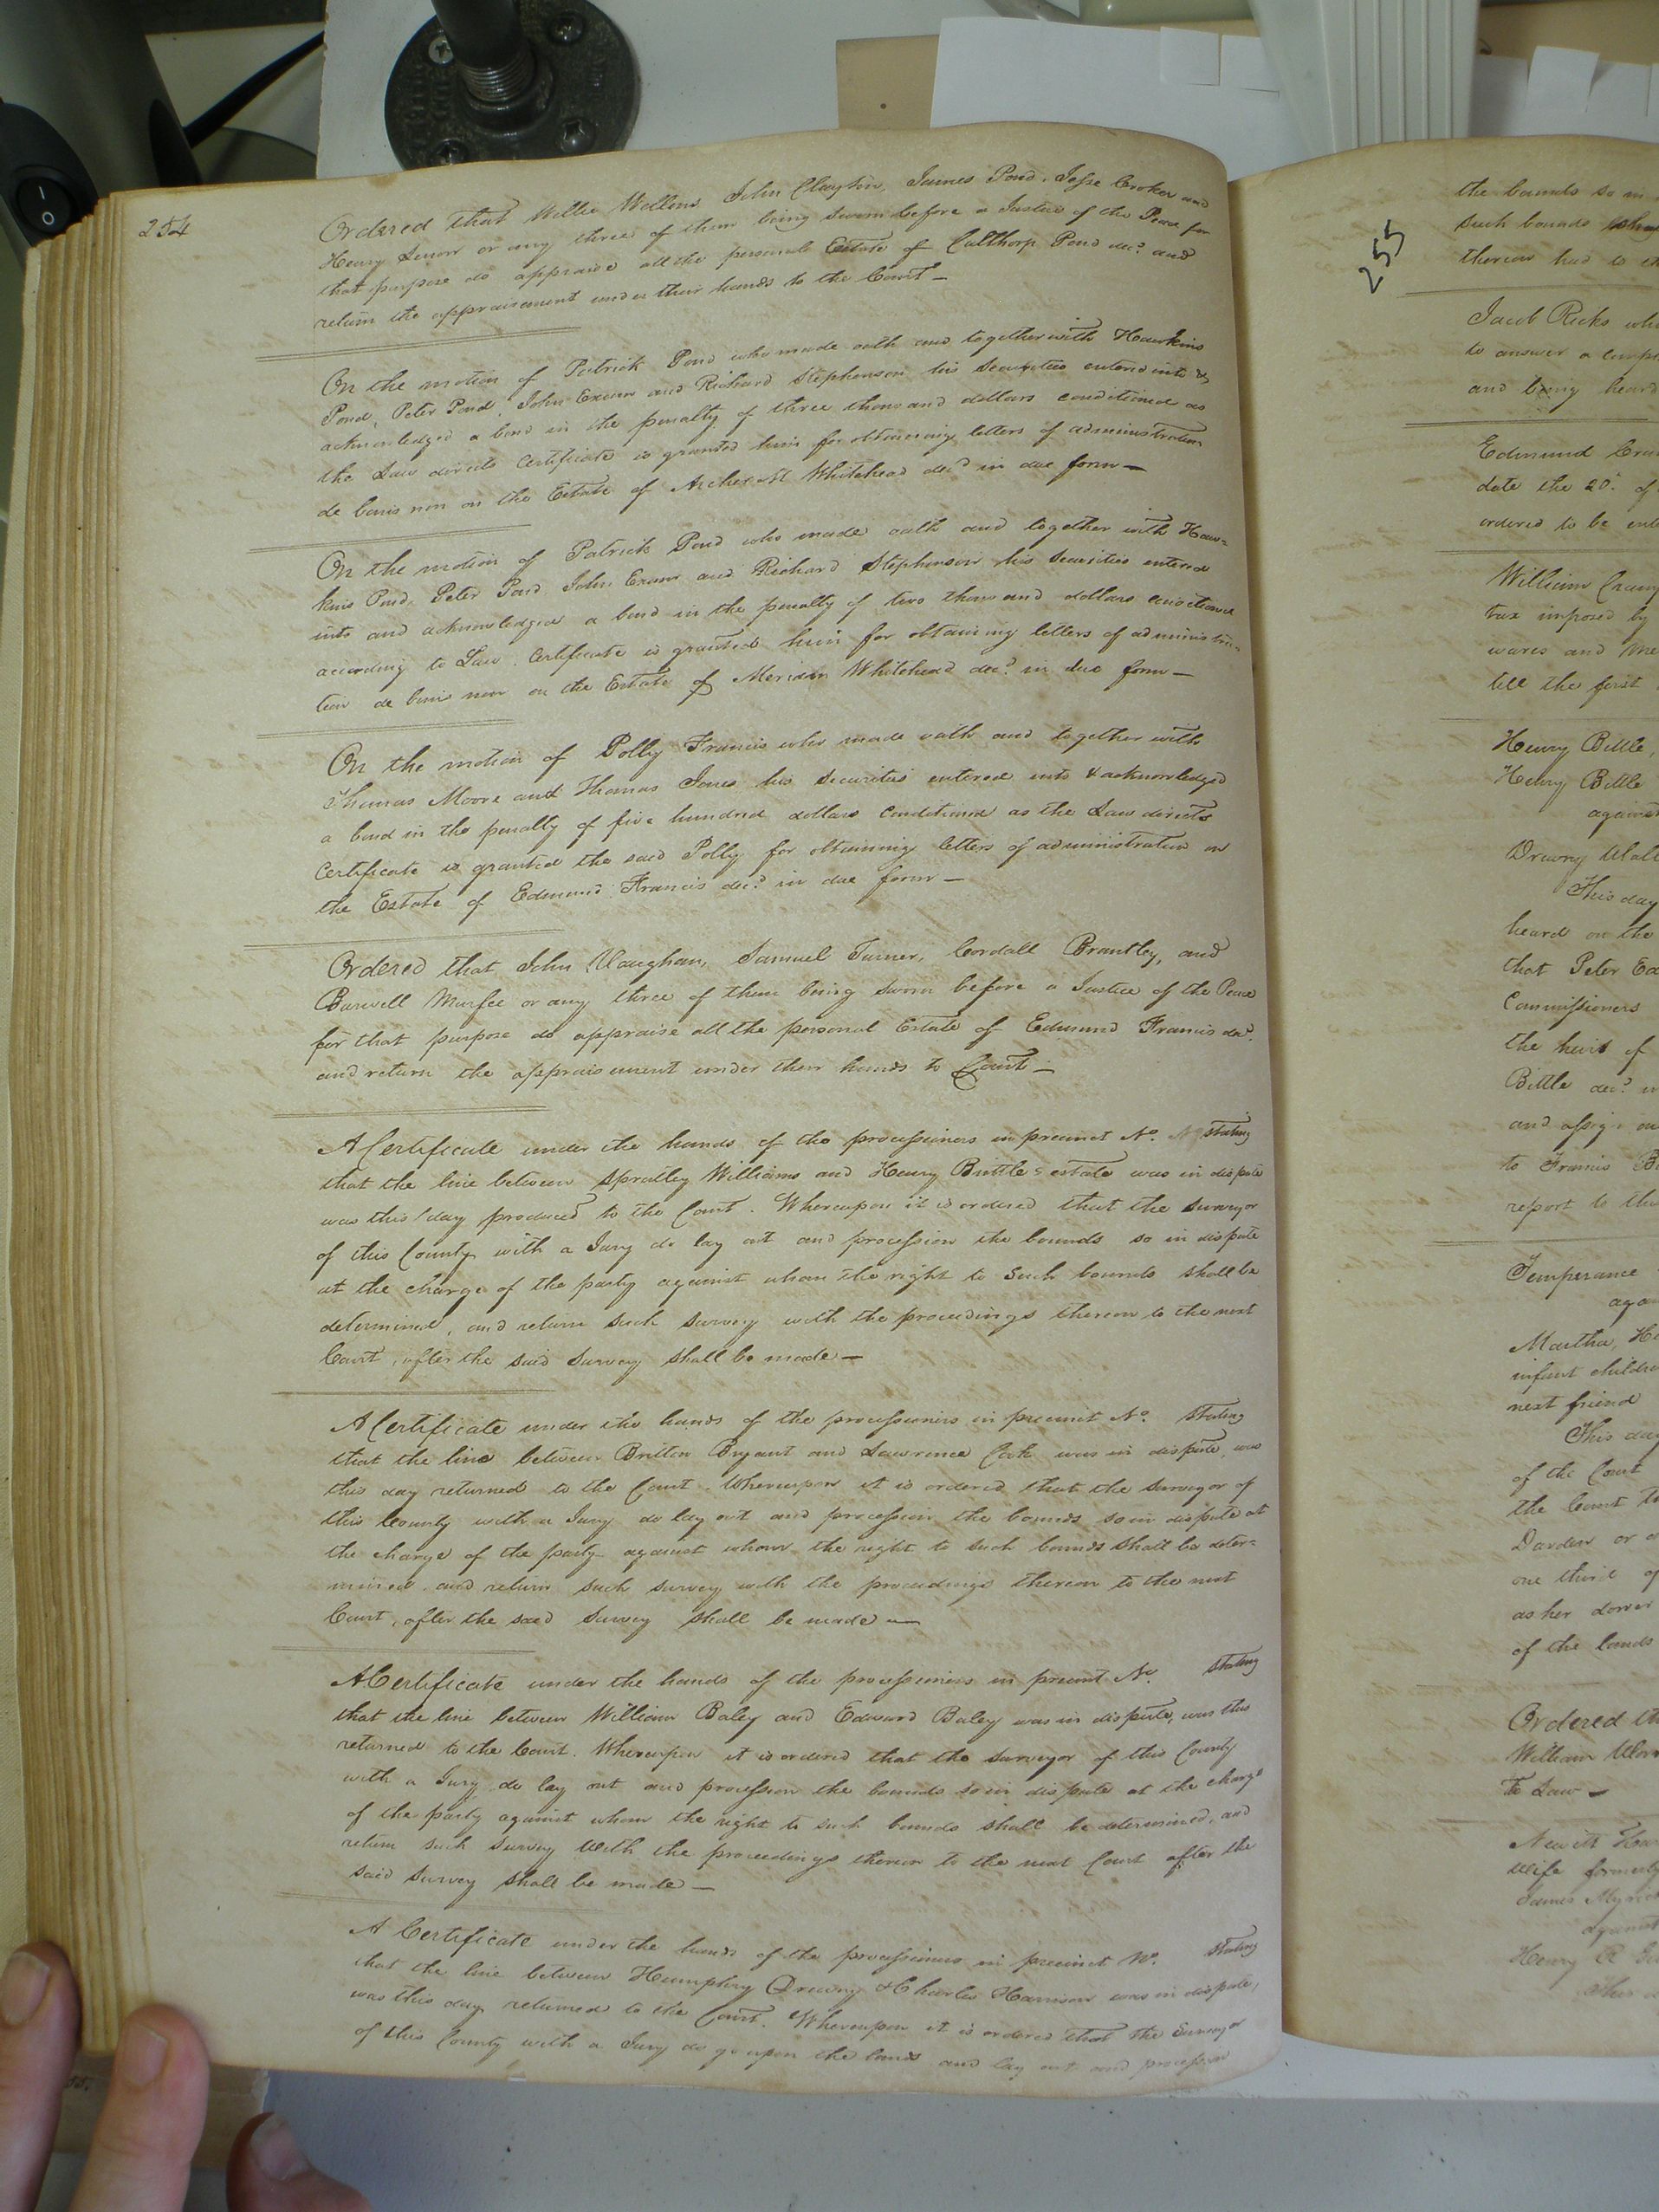 254
Ordered that Willie Wellons John Clayton, James Pond, Jesse Croker and
Henry or any three of them being sworn before a Justice of the Peace for
that purpose do appraise all the personal Estate of Culthorp Pond decd and
return the appraisement under their hands to the Court —
On the motion of Patrick Pond who made oath and together with Hawkins
Pond, Peter Pond, John Exum and Richard Stephenson his Securities entered into &
acknowledged a bond in the penalty of three thousand dollars conditioned as
the Law directs Certificate is granted him for obtaining letters of administration
de bonis non on the Estate of Whitehead decd in due form —
On the motion of Patrick Pond who made oath and together with Haw=
kins Pond, Peter Pond John Exum and Richard Stephenson his Securities entered
into and acknowledged a bond in the penalty of two thousand dollars conditioned
according to Law. Certificate is granted him for obtaining letters of administra=
tion de bonis non on the Estate of Whitehead decd in due form —
On the motion of Polly Francis who made oath and together with
Thomas Moore and Thomas Jones his Securities entered into & acknowledged
a bond in the penalty of five hundred dollars Conditioned as the Law directs
Certificate is granted the said Polly for obtaining letters of administration on
the Estate of Edmund Francis decd in due form —
Ordered that John Vaughan, Samuel Turner, Cordall Brantley, and
Burwell Murfee or any three of them being sworn before a Justice of the Peace
for that purpose do appraise all the personal Estate of Edmund Francis decd
and return the appraisement under their hands to Court —
A Certificate under the hands of the processioners in precinct No. stating
that the line between Spratley Williams and Henry Brittle's estate was in dispute
was this day produced to the Court. Whereupon it is ordered that the surveyor
of this County with a Jury do lay out and procession the bounds so in dispute
at the charge of the party against whom the right to such bounds shall be
determined, and return such survey with the proceedings thereon to the next
Court, after the said survey shall be made —
A Certificate under the hands of the processioners in precinct No. stating
that the line between Britton Bryant and Lawrence Cook was in dispute, was
this day returned to the Court. Whereupon it is ordered that the surveyor of
this County with a Jury do lay out and procession the bounds so in dispute at
the charge of the party against whom the right to such bounds shall be deter=
mined and return such survey with the proceedings thereon to the next
Court, after the said survey shall be made —
A Certificate under the hands of the processioners in precinct No. stating
that the line between William Baley and Edward Baley was in dispute, was this
returned to the Court. Whereupon it is ordered that the surveyor of this County
with a Jury do lay out and procession the bounds so in dispute at the charge
of the party against whom the right to such bounds shall be determined, and
return such survey with the proceedings thereon to the next Court after the
said survey shall be made —
A Certificate under the hands of the processioners in precinct No. stating
that the line between Humphry Drewry & Charles Harrison was in dispute,
was this day returned to the Court. Whereupon it is ordered that the Surveyor
of this County with a Jury do go upon the land and lay out and procession
255
the bounds so in
such bounds
thereon had to
Jacob Ricks who
to answer a
and being heard
Edmund
date the 20th of
ordered to be
William
tax imposed by
wares and
till the first
Henry Bittle,
Henry Bittle
against
Drewry
This day
heard on the
that Peter
Commissioners
the heirs of
Bittle decd
and assign
to Francis
report to the
Temperance
Martha,
infant children
next friend
This day
of the Court
the Court
Darden or
one third of
as her dower
of the lands
Ordered
William
to Law —
Wife formerly
James
against
Henry